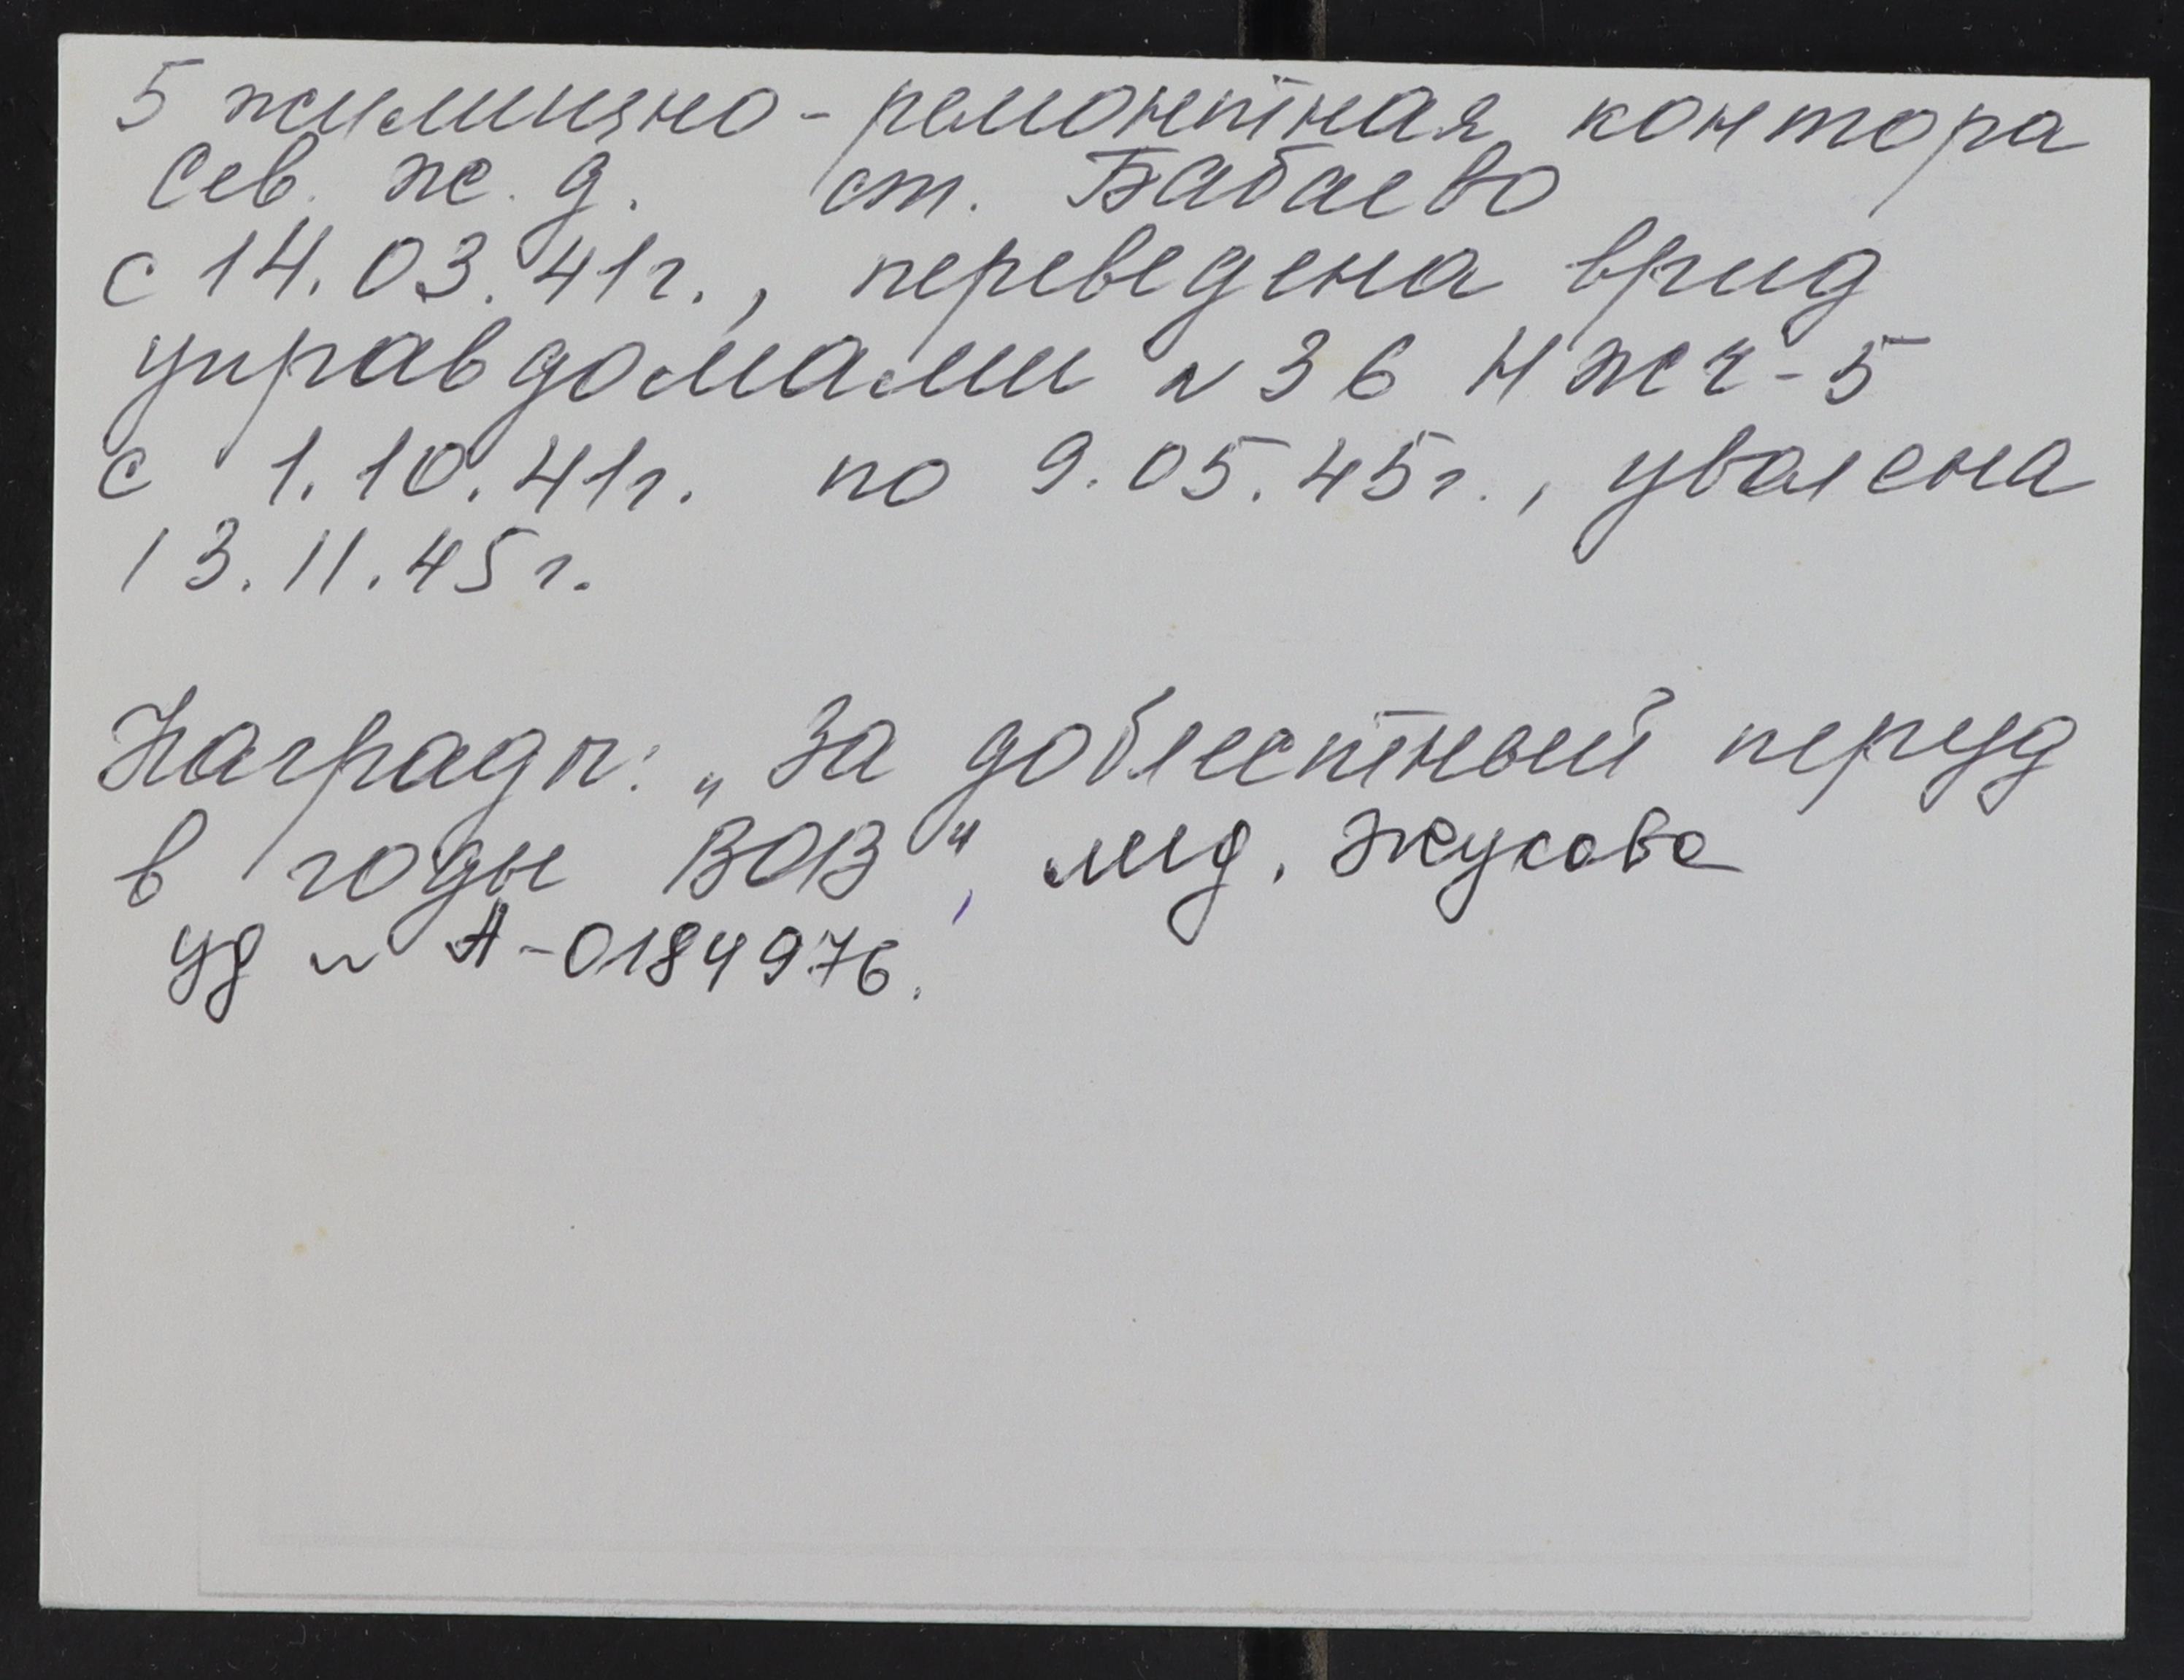 5 жилищно-ремонтная контора
Сев. ж. д. ст. Бабаево
с 14.03.41г., переведена врид
управдомами №36 НЖЧ-5
с 1.10.41г. по 9.05.45г., уволена
13.11.45г.
Награды: „За доблестный труд
в годы ВОВ", мед. Жукова
уд № А-0184976.